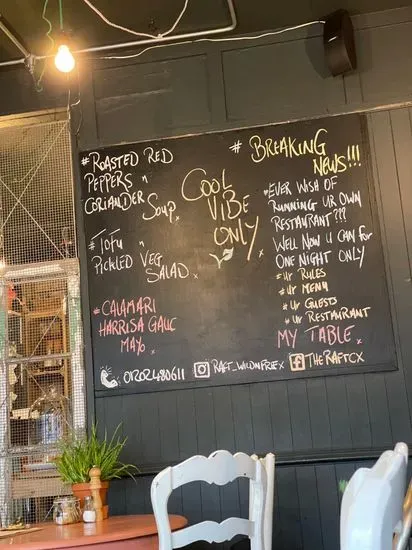 #ROASTED RED
PEPPERS "
CORIANDER SOUP x
#TOFU "
PICKLED VEG
SALAD x
#CALAMARI
HARRISA GALIC
MAYO x
COOL
ViBE
ONLY
# BREAKING
NEWS!!!
#EVER WISH OF
RUNNING UR OWN
RESTAURANT???
WELL NOW U CAN for
ONE NIGHT ONLY
#UR RULES
#UR MENU
#UR GUESTS
#UR RESTAURANT
MY TABLE x
01202480611
RAFT_WILDNFREEX
THERAFTCX